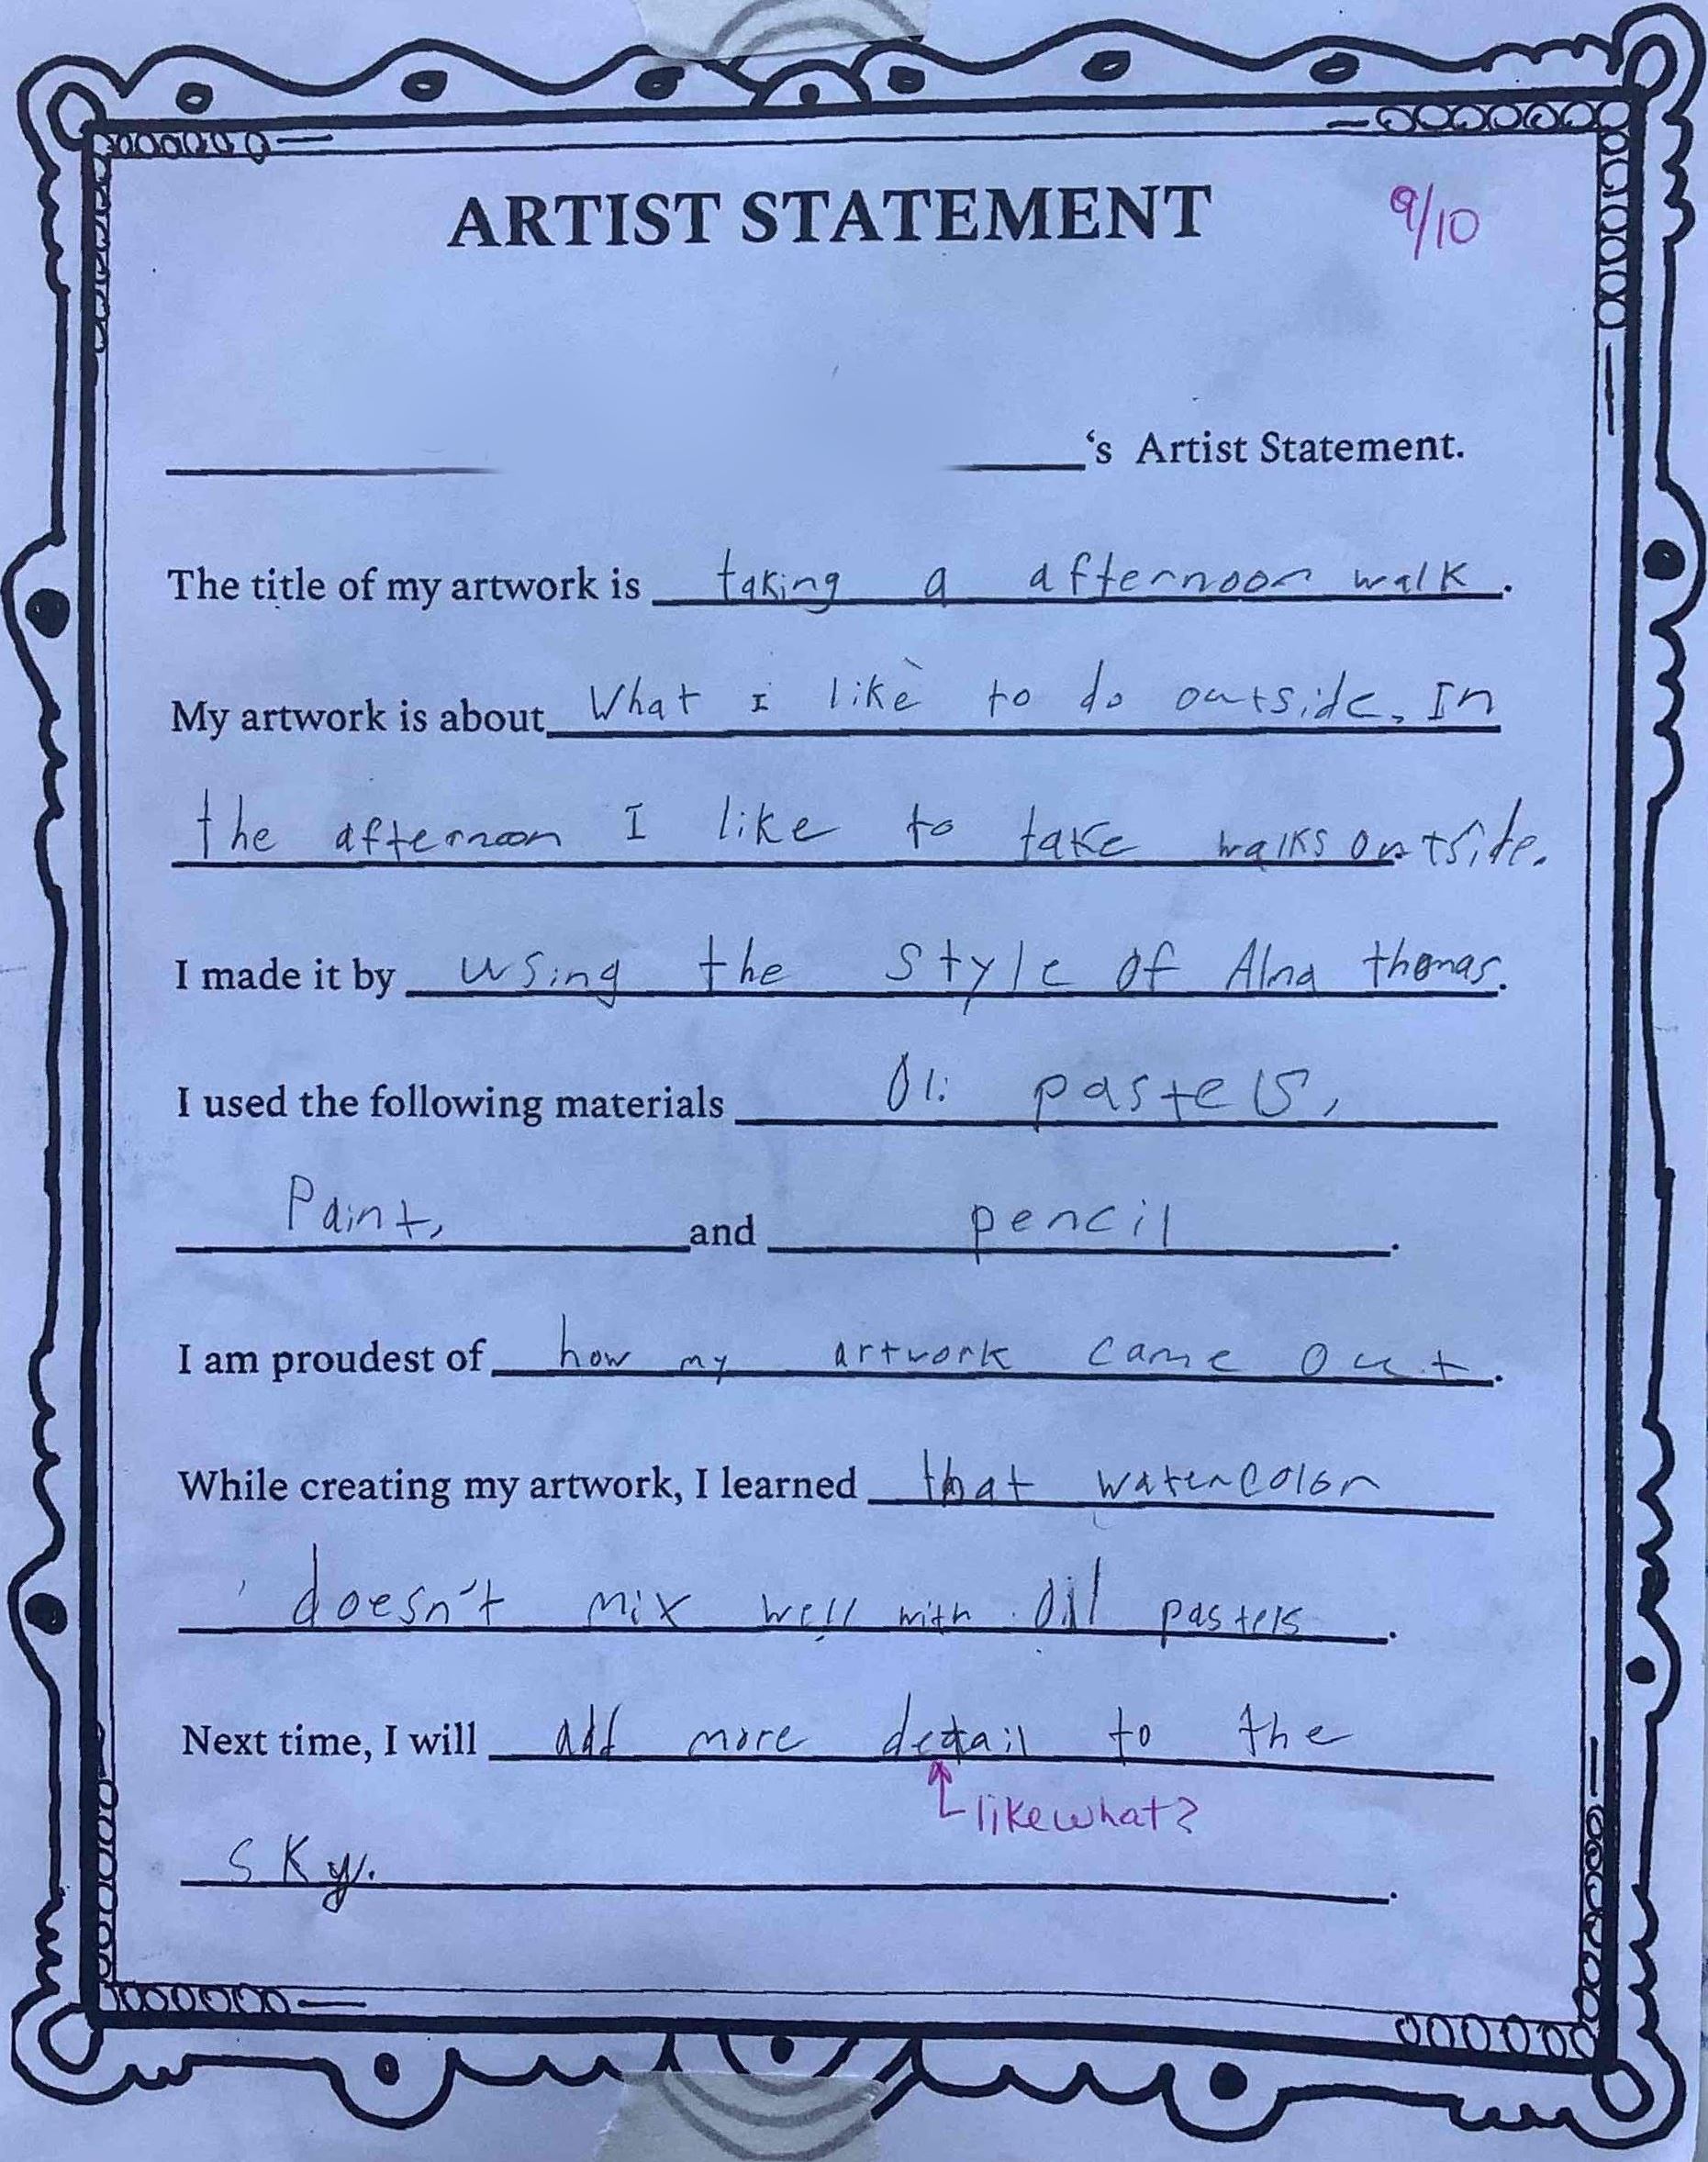 ARTIST STATEMENT 9/10
's Artist Statement.
The title of my artwork is taking a afternoon walk.
My artwork is about What I like to do outside. In
the afternoon I like to take walks outside.
I made it by using the style of Alna thomas.
I used the following materials Oli pastels,
Paint, and pencil.
I am proudest of how my artwork came out.
While creating my artwork, I learned that watercolor
doesn't mix well with oil pastels.
Next time, I will add more detail to the
like what?
sky.